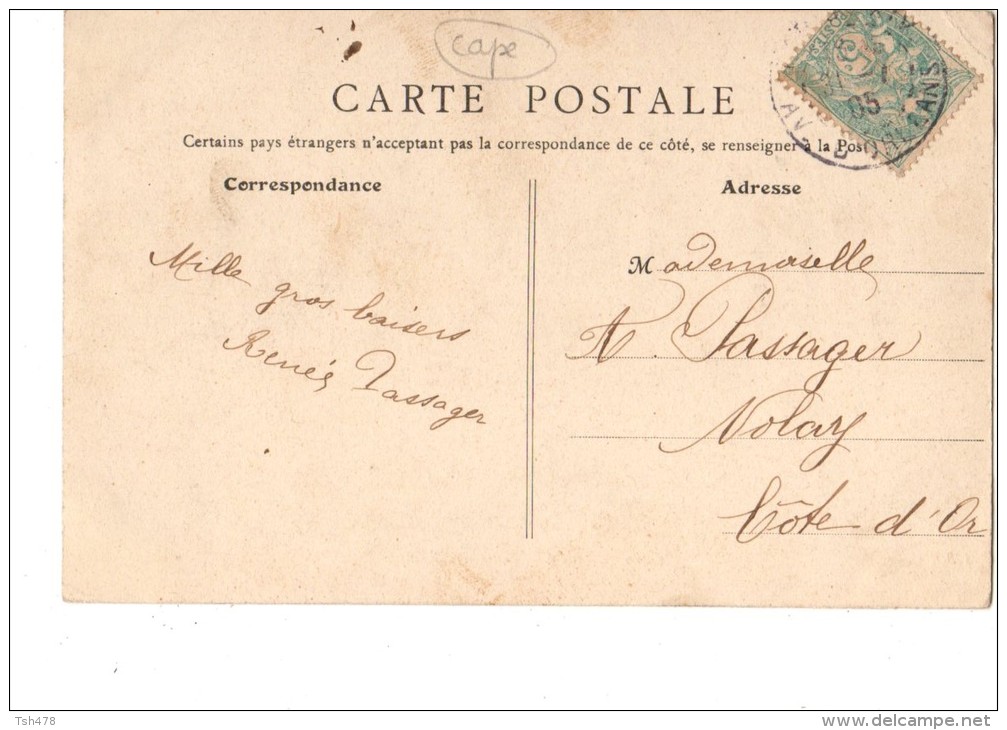 cape
CARTE POSTALE
Certains pays étrangers n'acceptant pas la correspondance de ce côté, se renseigner à la Poste
Correspondance
Mille gros baisers
Renée Passager
Adresse
Mademoiselle
A. Passager
Nolay
Côte d'Or
05
Tsh478
www.delcampe.net